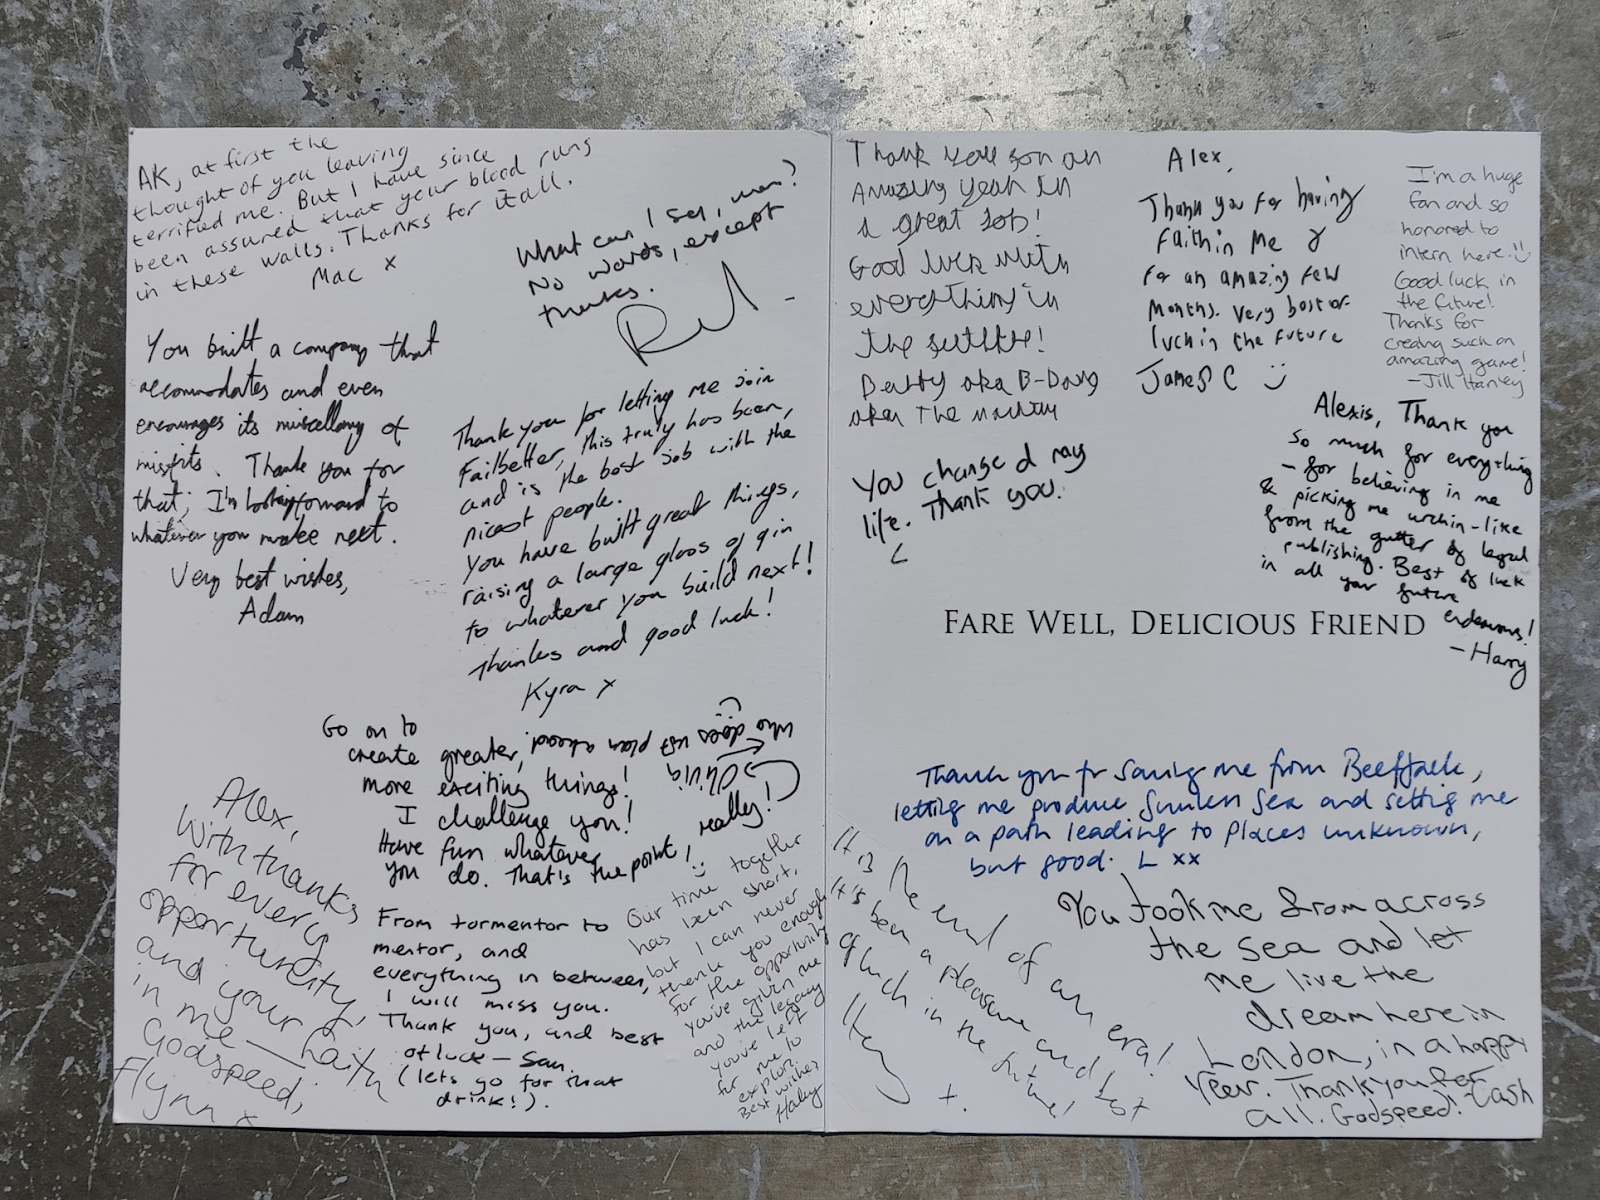 AK, at first the
thought of you leaving
terrified me. But I have since
been assured that your blood runs
in these walls. Thanks for it all.
Mac x
What can I say, man?
No words, except
thanks.
You built a company that
accommodates and even
encourages its miscellany of
misfits. Thank you for
that; I'm looking forward to
whatever you make next.
Very best wishes,
Adam
Thank you for letting me join
Failbetter, this truly has been,
and is the best job with the
nicest people.
You have built great things,
raising a large glass of gin
to whatever you build next!
Thanks and good luck!
Kyra x
Go on to
create greater,
more exciting things!
I challenge you!
Have fun whatever
you do. That's the point, really!
Olivia
who does not plan ahead
Alex,
With thanks
for every
opportunity,
and your faith
in me —
Godspeed,
Flynn x
From tormentor to
mentor, and
everything in between,
I will miss you.
Thank you, and best
of luck —
(lets go for that
drink!).
Our time together
has been short,
but I can never
thank you enough
for the opportunity
you've given me
and the legacy
you've left
for me to
explore.
Best wishes
Haley
Thank you son an
Amazing year in
a great Job!
Good luck with
everything in
the
aka B-Dawg
aka The
You changed my
life. Thank you.
L
Alex,
Thank you for having
faith in me &
for an amazing few
months. Very best of
luck in the future
James C :)
I'm a huge
fan and so
honored to
intern here. :)
Good luck in
the future!
Thanks for
creating such an
amazing game!
-Jill
Alexis, Thank you
so much for everything
- for believing in me
& picking me urchin-like
from the gutter of legal
publishing. Best of luck
in all your future
endeavours!
- Harry
FARE WELL, DELICIOUS FRIEND
Thank you for saving me from Beefjack,
letting me produce Sunless Sea and setting me
on a path leading to places unknown,
but good. L xx
It is the end of an era!
It's been a pleasure and best
of luck in the future!
x.
You took me from across
the sea and let
me live the
dream here in
London, in a happy
Year. Thank you for
all. Godspeed! - Cash